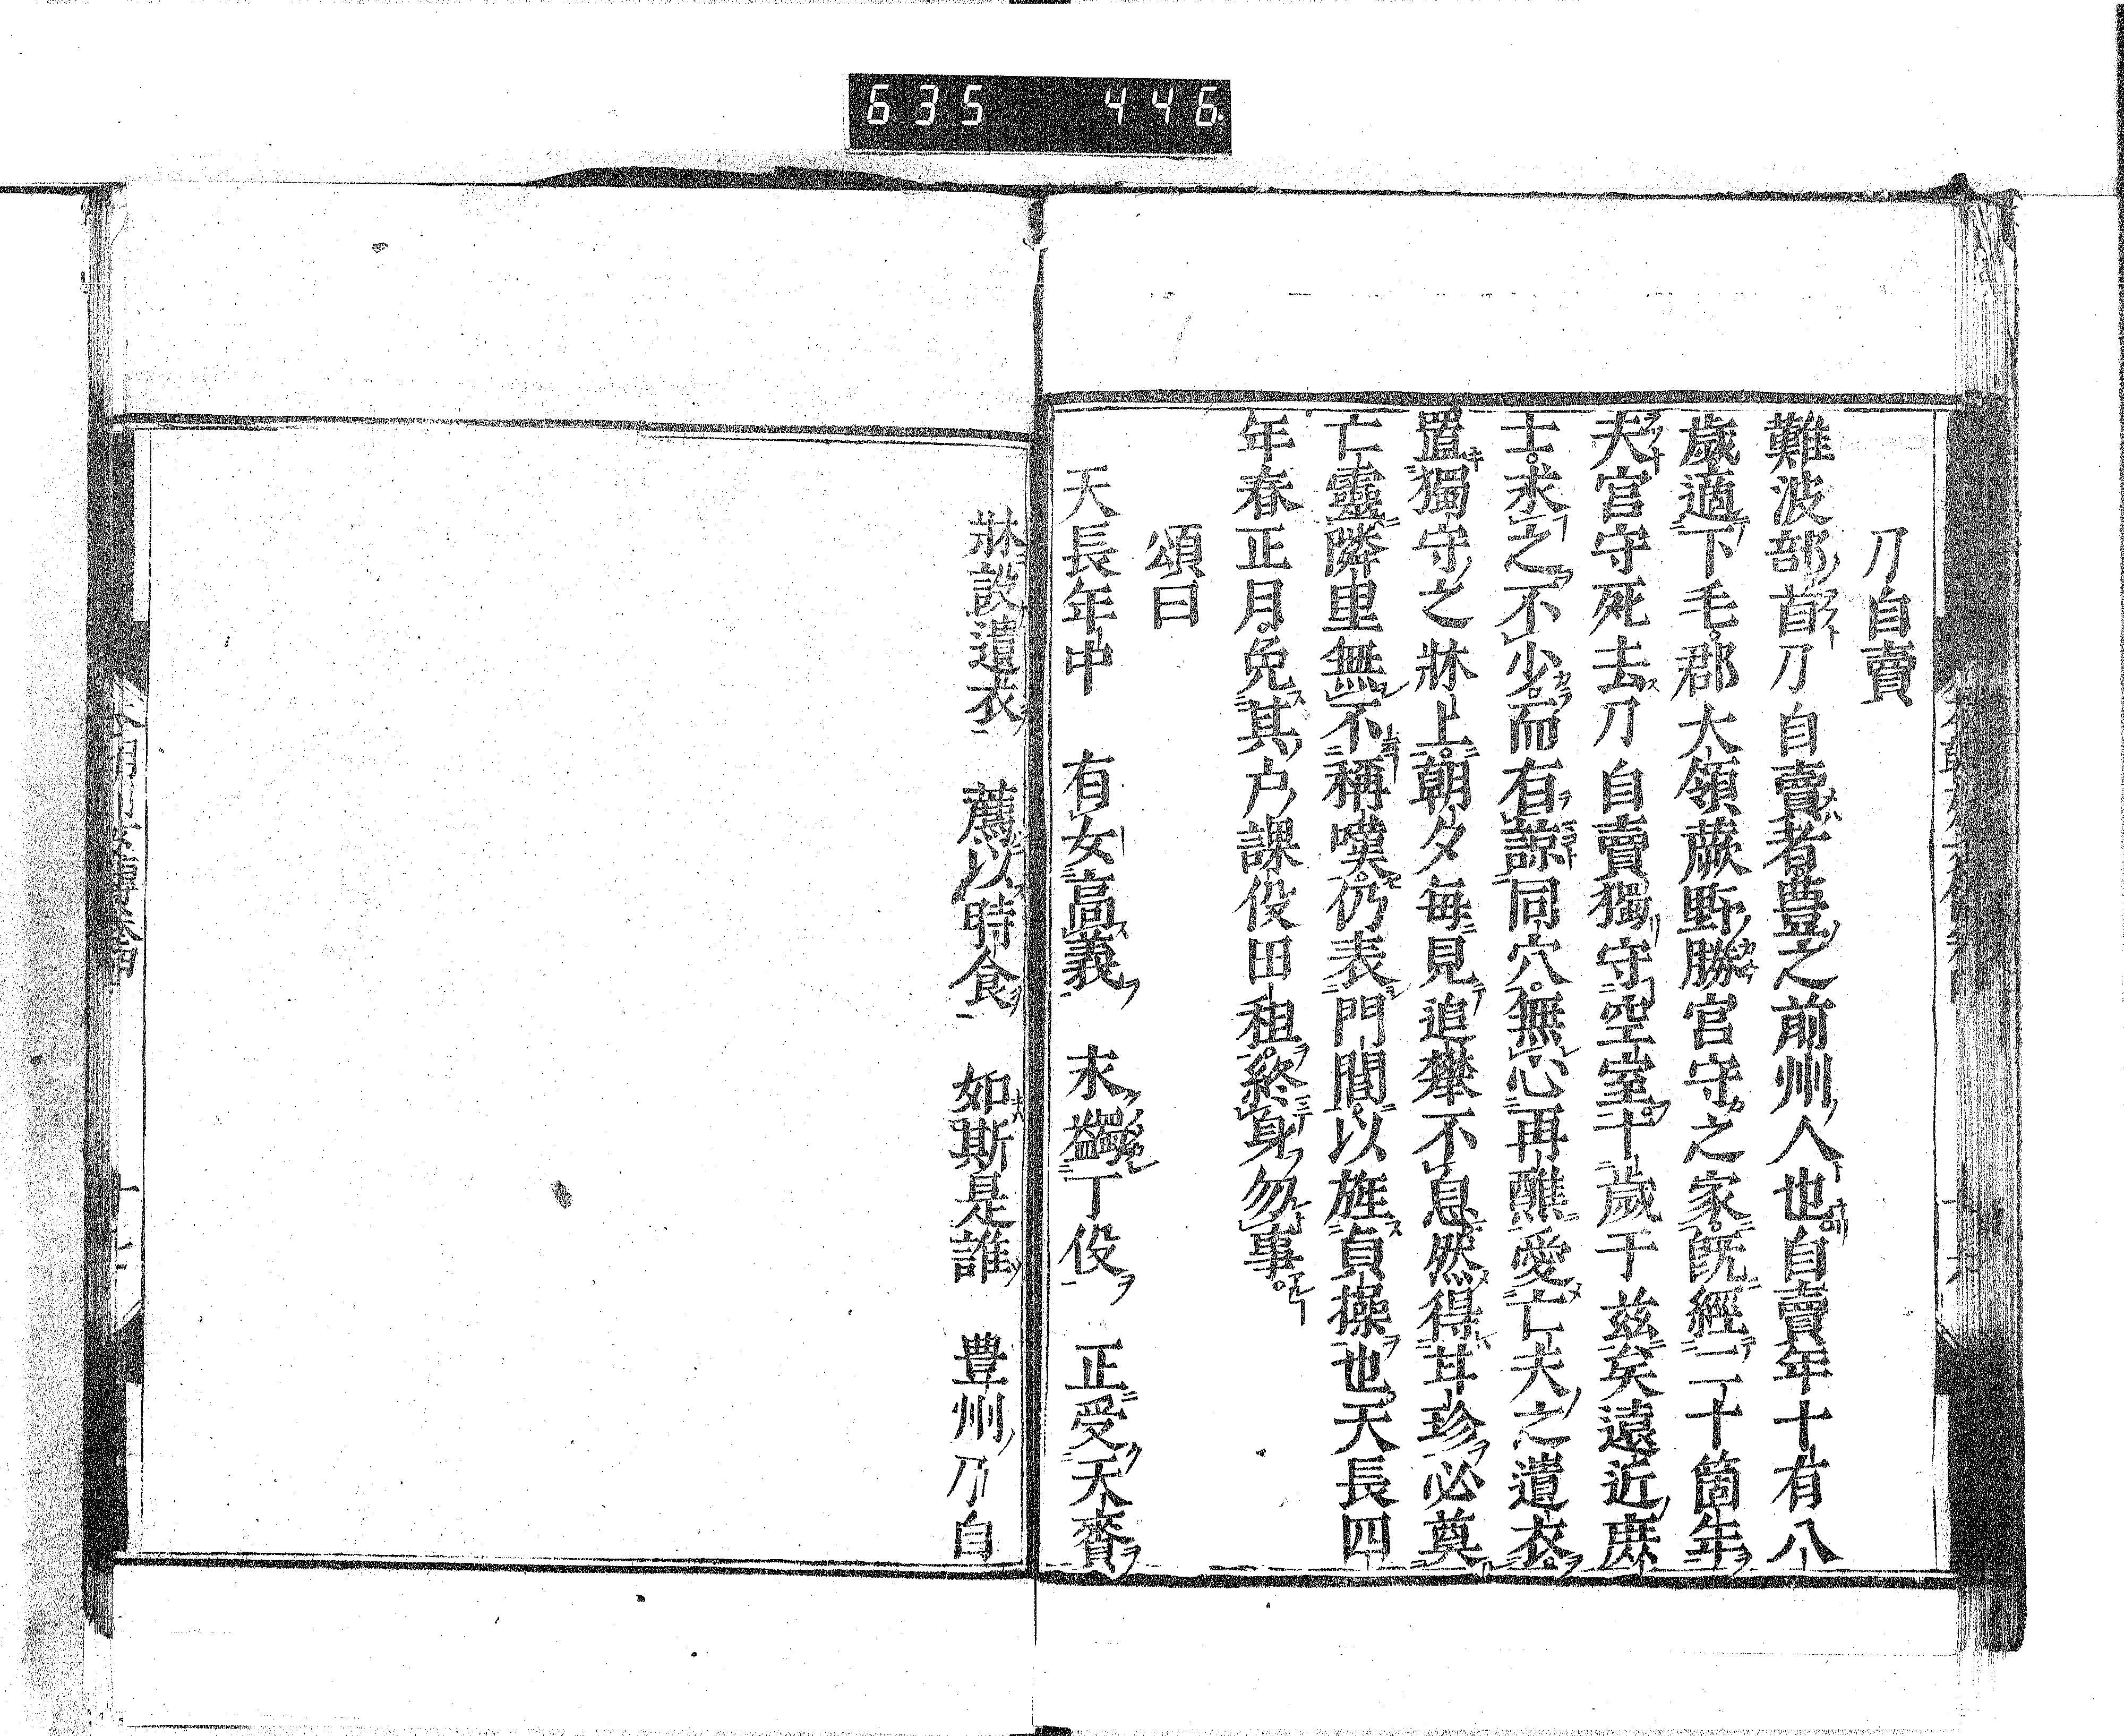 635 446.
刀自賣
難波部首刀自賣者豊之前州人也自賣年十有八
歲適下毛郡大領蕨野勝宮守之家既經二十箇年
夫宮守死去刀自賣獨守空室十歲于茲矣遠近庶
士求之不少而有諒同穴無心再醮愛亡夫之遺衣
置獨守之牀上朝夕每見追攀不息然得甘珍必奠
亡靈隣里無不稱嘆仍表門閭以旌貞操也天長四
年春正月免其戶課役田租終身勿事
頌曰
天長年中　有女高義　末蠲丁役　正受天賚
牀設遺衣　薦以時食　如斯是誰　豊州刀自